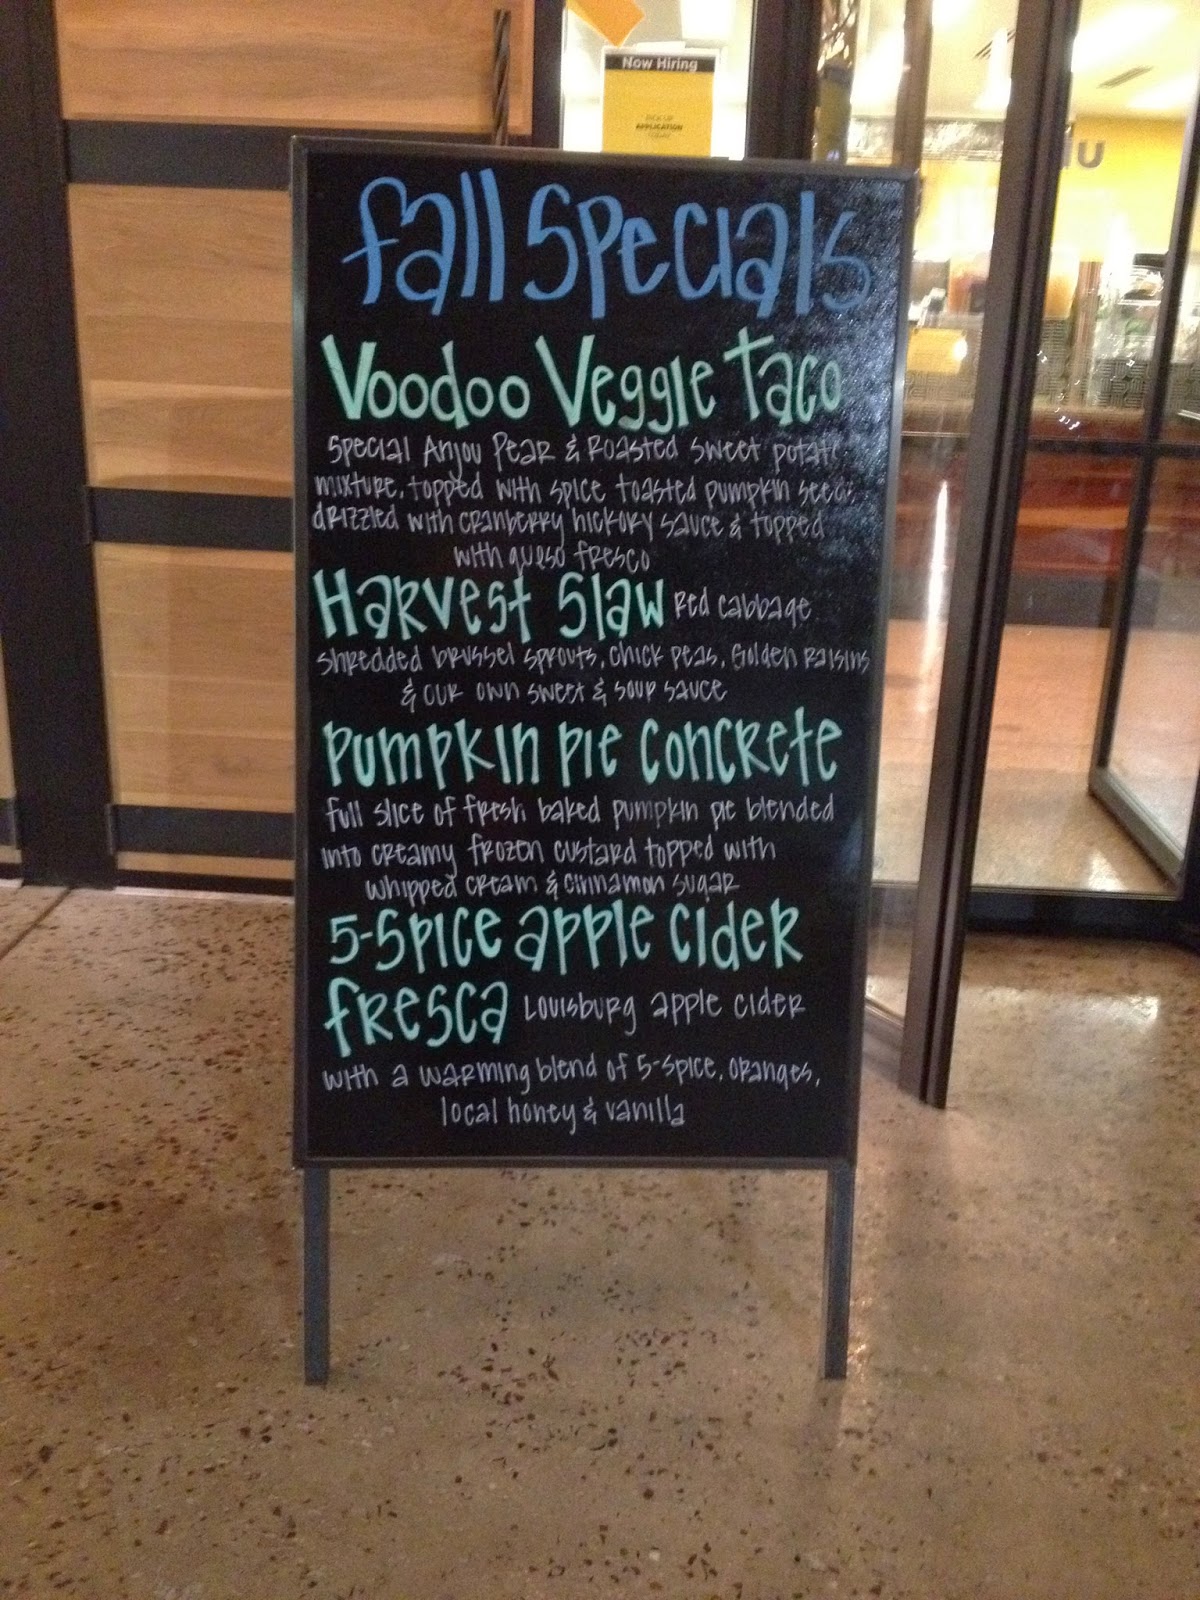 Now Hiring
PICK UP
APPLICATION
TODAY
fall Specials
Voodoo Veggie Taco
Special Anjou Pear & Roasted sweet potato
mixture, topped with spice toasted pumpkin seeds
drizzled with cranberry hickory sauce & topped
with queso fresco
Harvest Slaw Red cabbage
shredded brussel sprouts, chick peas, Golden Raisins
& our own sweet & sour sauce
Pumpkin Pie Concrete
full slice of fresh baked pumpkin pie blended
into creamy frozen custard topped with
whipped cream & cinnamon sugar
5-Spice apple cider
fresca Louisburg apple cider
with a warming blend of 5-spice, oranges,
local honey & vanilla